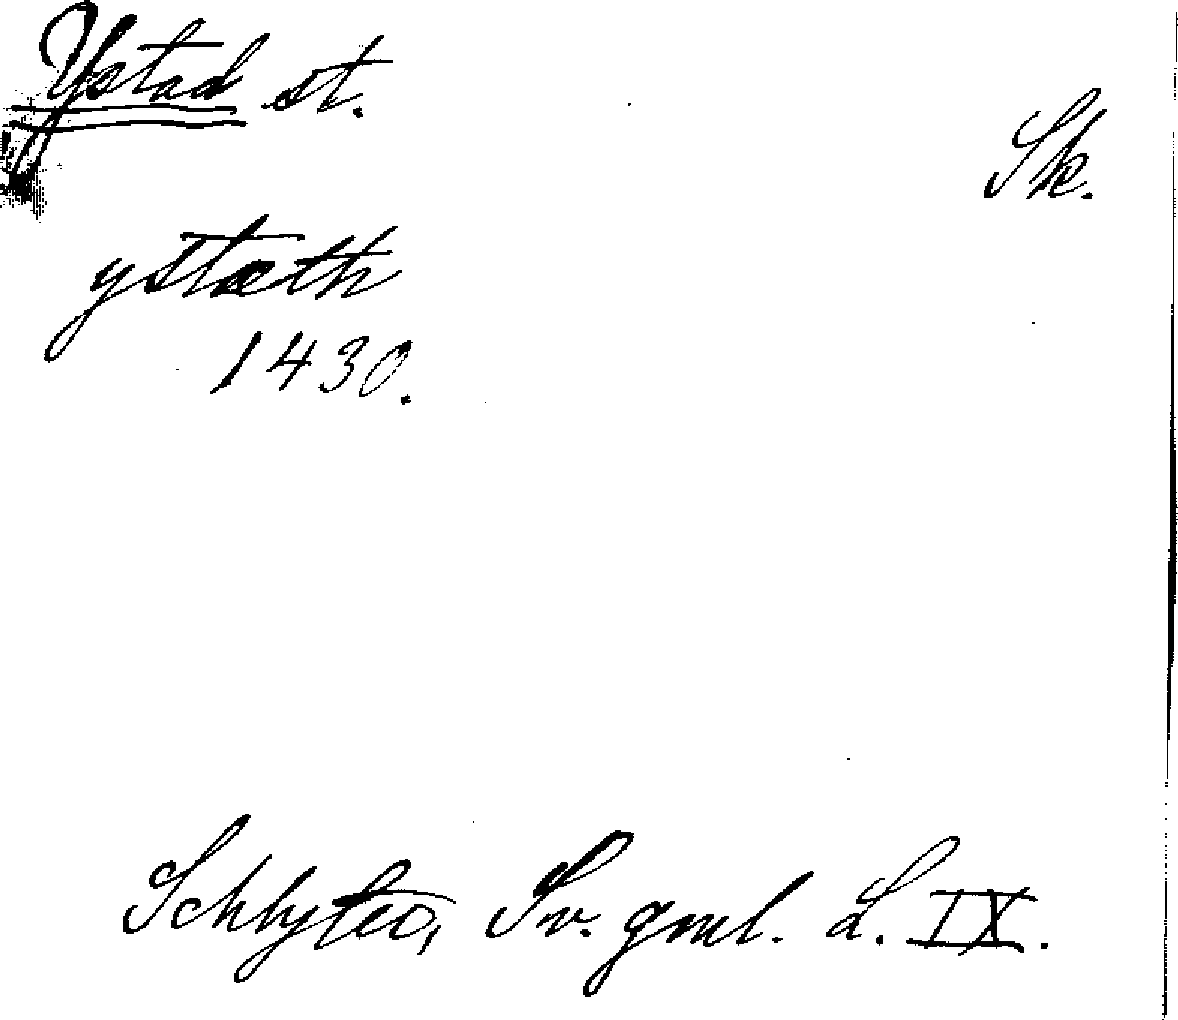 Ystad st.
Sk.
ystæth
1430.
Schlyter, Sv. gml. L. IX.